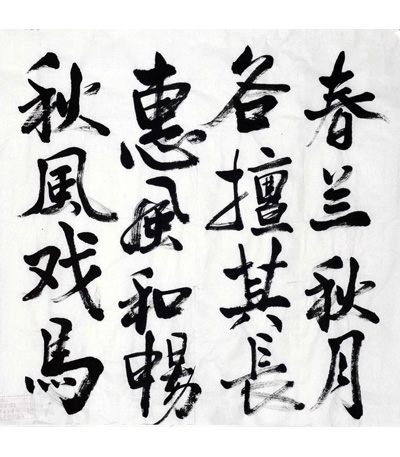 春兰秋月
各擅其長
惠風和暢
秋風戏馬